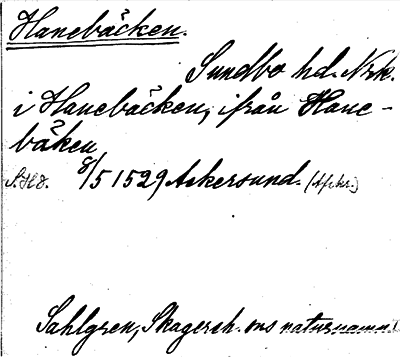 Hanebäcken.
Sundbo hd. Nrk.
i Hanebäcken, ifrån Hane-
bäken
8/5 1529 Askersund. (Afskr.)
Sahlgren, Skagersh. ons naturnamn.